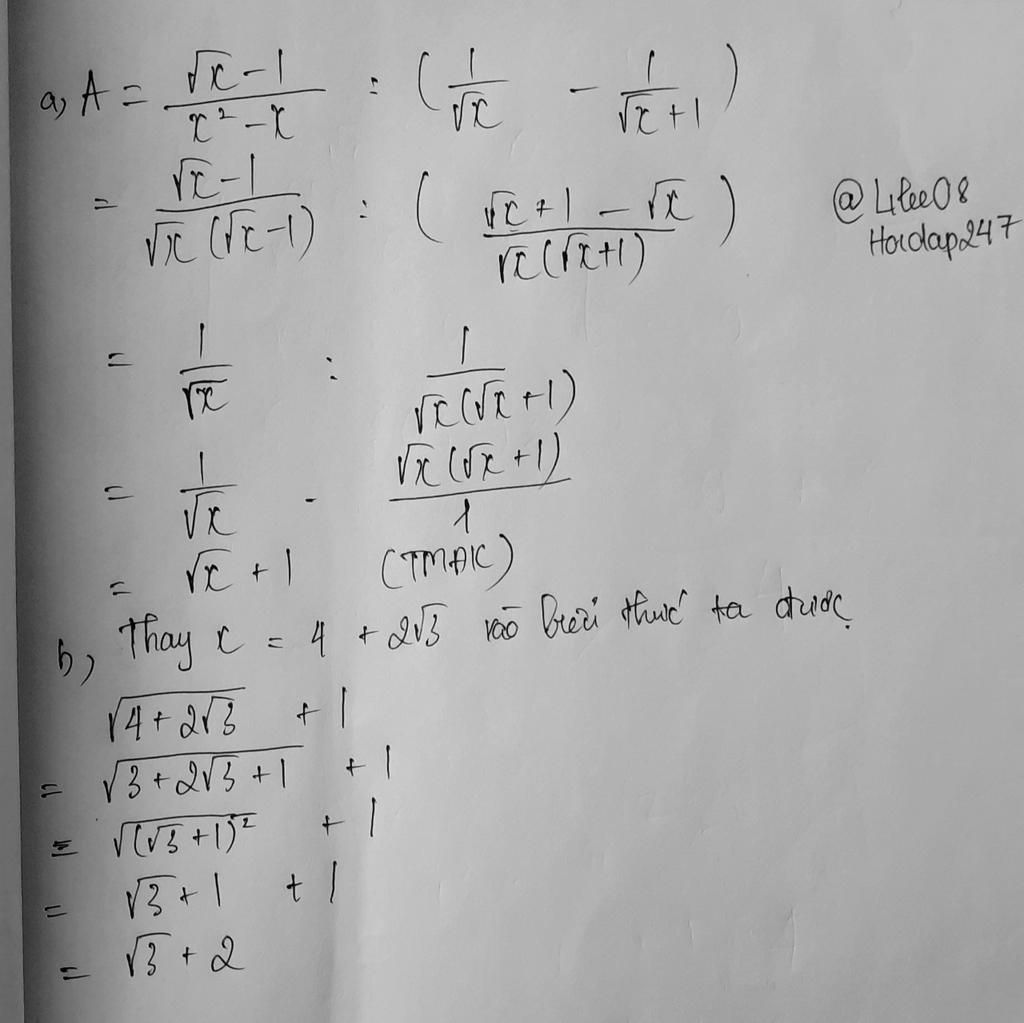 a, A = \frac{√x - 1}{x² - x} : ( \frac{1}{√x} - \frac{1}{√x + 1} )
= \frac{√x - 1}{√x (√x - 1)} : ( \frac{√x + 1 - √x}{√x (√x + 1)} )
@Lilee08
Hoidap247
= \frac{1}{√x} : \frac{1}{√x (√x + 1)}
= \frac{1}{√x} . \frac{√x (√x + 1)}{1}
= √x + 1 (TMĐK)
b, Thay x = 4 + 2√3 vào biểu thức ta được
√(4 + 2√3) + 1
= √(3 + 2√3 + 1) + 1
= √((√3 + 1)²) + 1
= √3 + 1 + 1
= √3 + 2